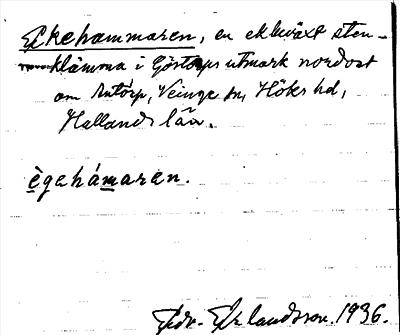 Ekehammaren, en ekbeväxt sten-
klämma i Göstorps utmark nordost
om Antorp, Veinge sn, Höks hd,
Hallands län.
ègehámaren.
Fr. Eklandsson. 1936.